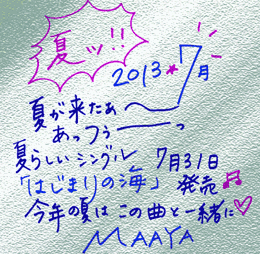 夏ッ!!
2013★7月
夏が来たぁ〜
あっつぅーーっ
夏らしいシングル 7月31日
「はじまりの海」発売♫
今年の夏は この曲と一緒に♡
MAAYA